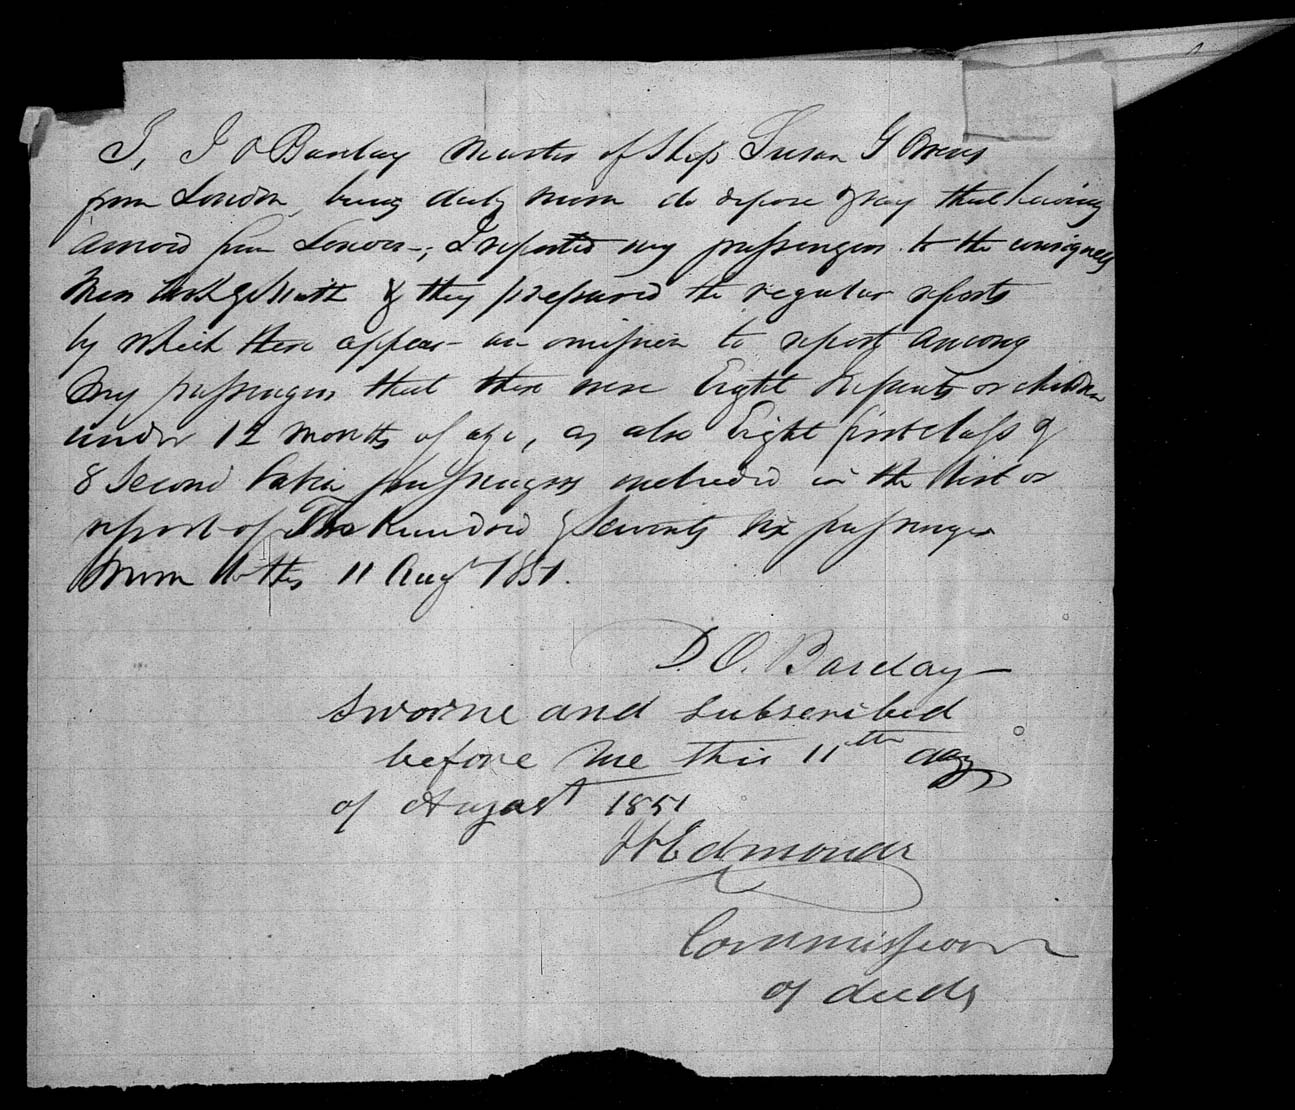 I, D O Barclay Master of Ship Susan G Owens
from London, being duly sworn do depose & say that having
arrived from London; I reported my passengers to the consignees
Mess & they prepared the regular reports
by which there appear an omission to report among
my passengers that there were Eight Infants or children
under 12 months of age, as also Eight first class &
8 Second Cabin passengers included in the list or
report of Two Hundred & Seventy Six passengers
Sworn to this 11 Augt 1851.
D. O. Barclay
Sworne and Subscribed
before me this 11th day
of August 1851
Edmonds
Commissioner
of deeds